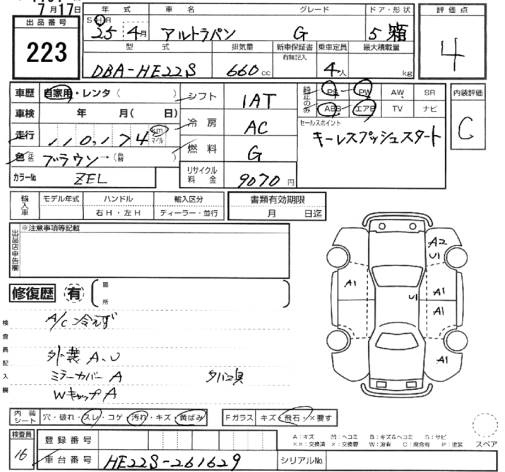 7月17日
出品番号
223
年式 車名 グレード ドア・形状
25年4月 アルトラパン G 5 箱
型式 排気量 新車保証書 有無記入 乗車定員 最大積載量
DBA-HE22S 660cc 4人 kg
評価点
4
車歴 自家用・レンタ( )
車検 年 月( 日)
走行 110,174 km マイル
色 ブラウン
カラーNo. ZEL
シフト IAT
冷房 AC
燃料 G
リサイクル料金 9070円
PS PW AW SR
ABS エアB TV ナビ
セールスポイント
キーレスプッシュスタート
内装評価
C
輸入車 モデル年式 ハンドル 輸入区分
右H・左H ディーラー・並行
書類有効期限
月 日迄
出品店申告欄
※注意事項等記載
修復歴 有 箇所
検査員記入欄
A/C 冷えず
外装A、U
ミラーカバーA
WキャップA
タバコ臭
A2
U1
A1
U1
A1
A1
内装シート 穴・破れ・スレ・コゲ 汚れ・キズ・黄ばみ
Fガラス キズ・飛石・×要す
A:キズ M:ヘコミ B:キズ&ヘコミ S:サビ
スペア
検査員
16
登録番号
車台番号 HE22S-261629
シリアルNo.